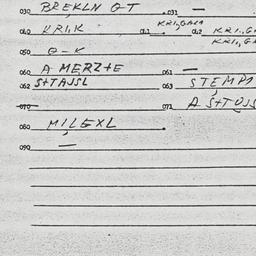 030 BREKLN QT 031 —
040 KRI,K 041 KRI,GALA 042 KRI,GA
KRI,GA
050 Q-K
060 A MERZTE 061 —
062 S+TAJSL 063 STEMPA
070 — 071 A S+TOJS
080 MILEXL .
090 —